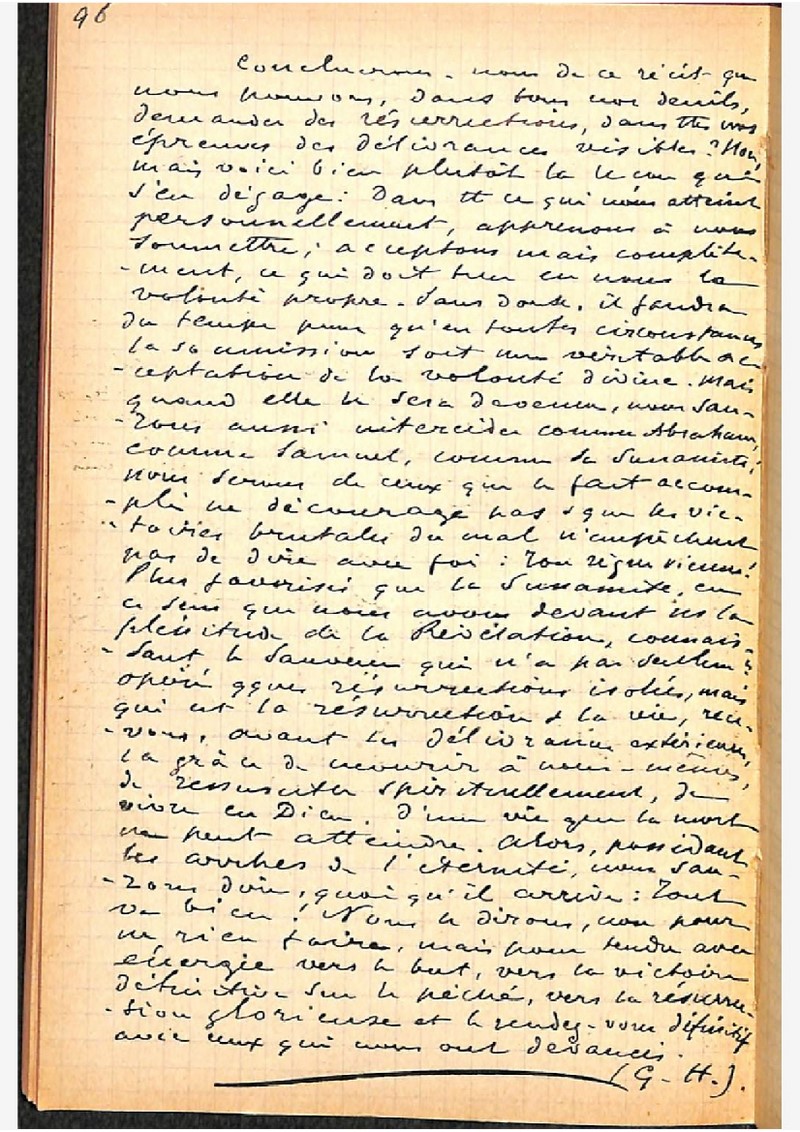 96
Concluerons-nous de ce récit que
nous pouvons, dans tous nos deuils,
demander des résurrections, dans ttes nos
épreuves des délivrances visibles? Non,
mais voici bien plutôt la leçon qui
s'en dégage: Dans tt ce qui nous atteint
personnellement, apprenons à nous
soumettre; acceptons mais complète-
-ment, ce qui doit tuer en nous la
volonté propre. Sans doute, il faudra
du temps pour qu'en toutes circonstances
la soumission soit une véritable ac-
-ceptation de la volonté divine. Mais
quand elle le sera devenue, nous sau-
-rons aussi intercéder comme Abraham,
comme Samuel, comme la Sunamite;
nous serons de ceux que le fait accom-
-pli ne décourage pas & que les vic-
-toires brutales du mal n'empêchent
pas de dire avec foi: Ton règne vienne!
Plus favorisés que la Sunamite, en
ce sens que nous avons devant ns la
plénitude de la Révélation, connais-
-sant le Sauveur qui n'a pas seulemt
opéré qques résurrections isolées, mais
qui est la résurrection & la vie, rece-
-vons, avant les délivrances extérieures,
la grâce de mourir à nous-mêmes,
de ressusciter spirituellement, de
vivre en Dieu, d'une vie que la mort
ne peut atteindre. Alors, possédant
les arrhes de l'éternité, nous sau-
-rons dire, quoi qu'il arrive: Tout
va bien! Nous le dirons, non pour
ne rien faire, mais pour tendre avec
énergie vers le but, vers la victoire
définitive sur le péché, vers la résurrec-
-tion glorieuse et le rendez-vous définitif
avec ceux qui nous ont devancés.
(G. H.).